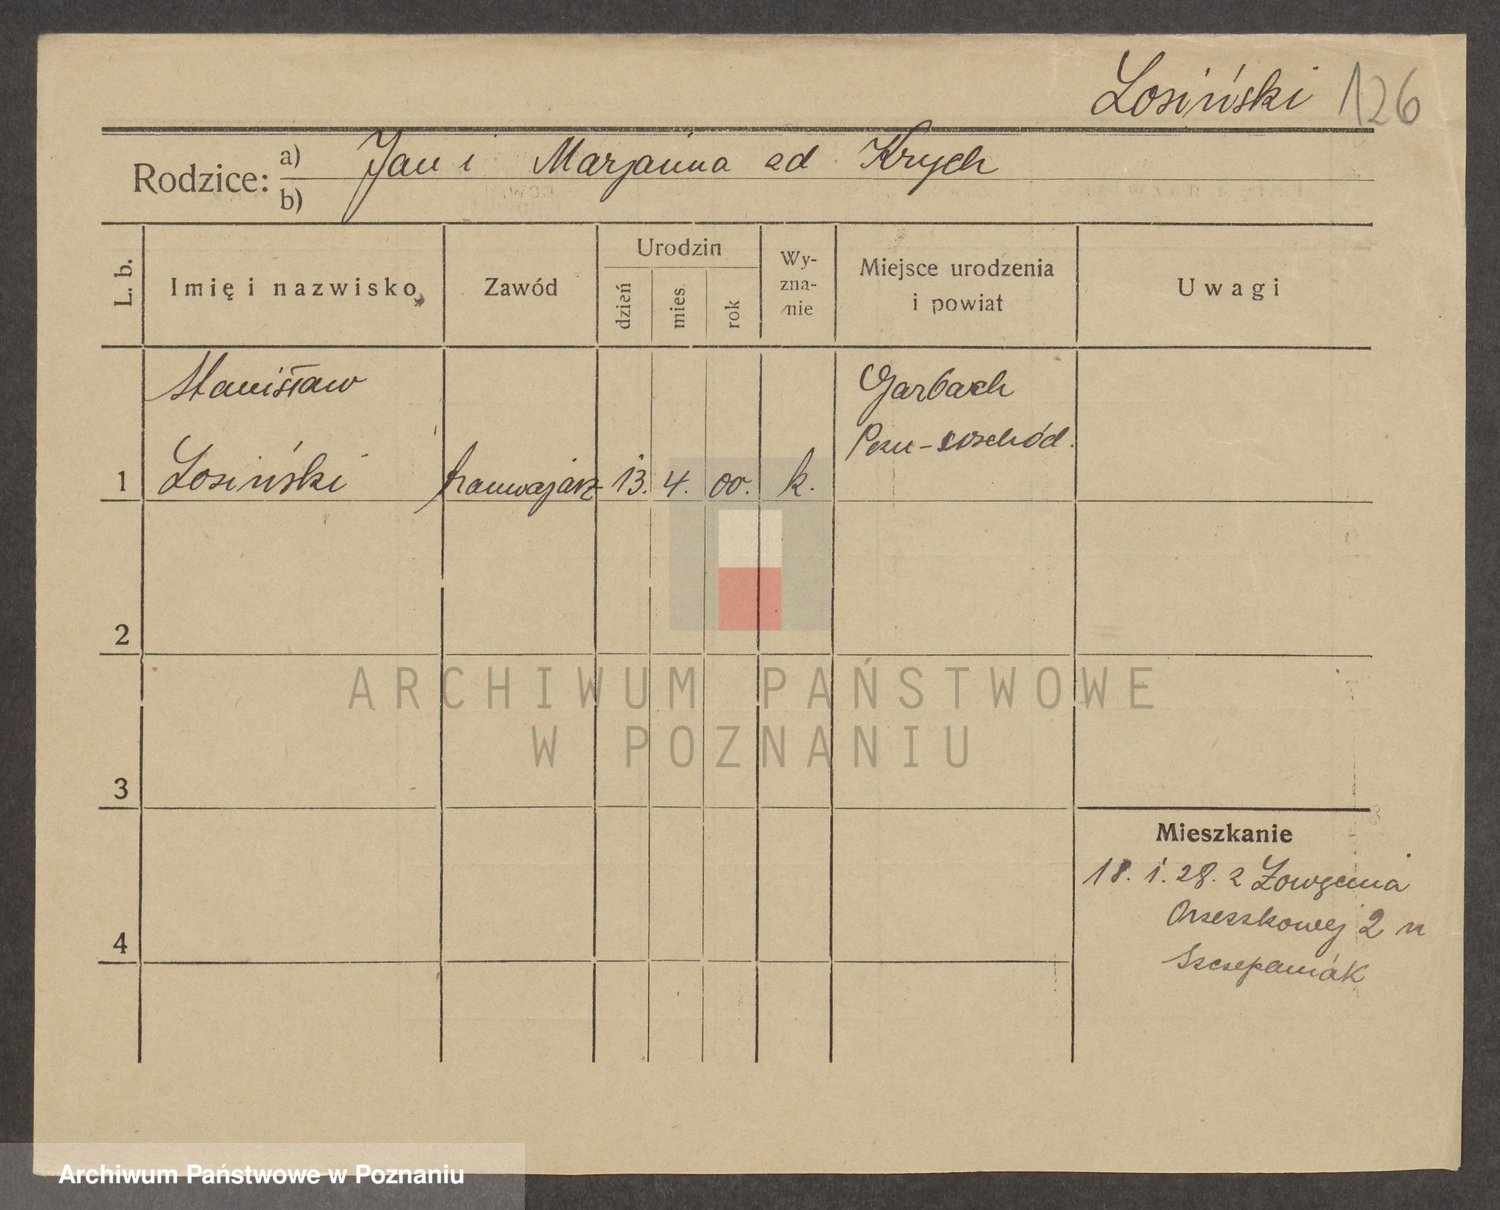 Łosiński 126
Rodzice: a) Jan i Marjanna zd Krych
b)
L. b.
Imię i nazwisko
Zawód
Urodzin
dzień
mies.
rok
Wy-
zna-
nie
Miejsce urodzenia
i powiat
Uwagi
Stanisław
Łosiński
tramwajarz
13. 4. 00.
k.
Garbach
Pozn-wschód.
1
2
3
4
Mieszkanie
18. 1. 28. z
Orzeszkowej 2 u
Szczepaniak
ARCHIWUM PAŃSTWOWE
W POZNANIU
Archiwum Państwowe w Poznaniu